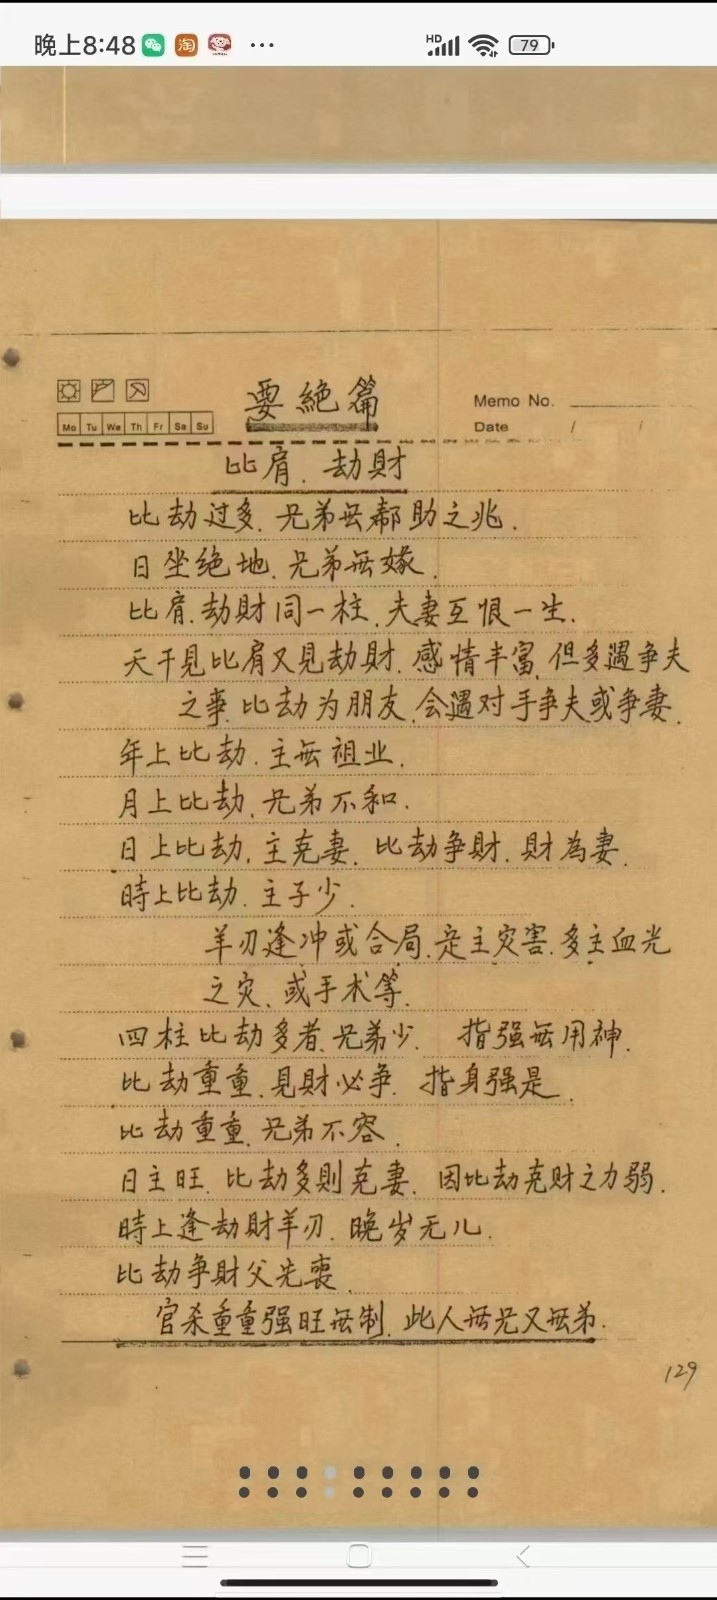 晚上8:48 淘 ··· HD 79
要絶篇
Memo No.
Mo Tu We Th Fr Sa Su
Date / /
比肩、劫財
比劫过多、兄弟無幫助之兆.
日坐绝地、兄弟無嫁.
比肩、劫財同一柱、夫妻互恨一生.
天干見比肩又見劫財、感情丰富、但多遇争夫
之事、比劫为朋友、会遇对手争夫或争妻.
年上比劫、主無祖业.
月上比劫、兄弟不和.
日上比劫、主克妻、比劫争財、財為妻.
時上比劫、主子少.
羊刃逢冲或合局、定主灾害、多主血光
之灾、或手术等.
四柱比劫多者、兄弟少. 指强無用神.
比劫重重、見財必争. 指身强是.
比劫重重、兄弟不容.
日主旺、比劫多則克妻、因比劫克财之力弱.
時上逢劫財羊刃、晚岁无儿.
比劫争財父先喪.
官杀重重强旺無制、此人無兄又無弟.
129